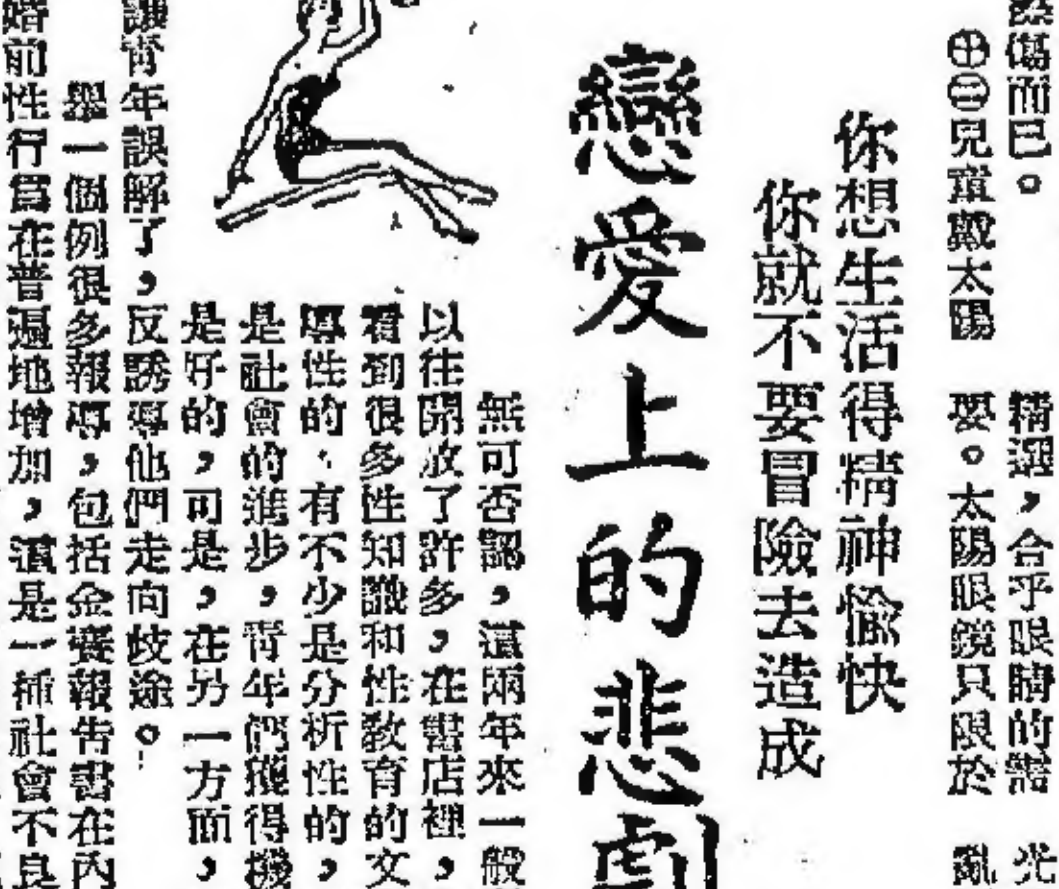 傷而已。
㊉㊁兒童戴太陽
精選，合乎眼睛的需
要。太陽眼鏡只限於
光
亂
你想生活得精神愉快
你就不要冒險去造成
戀愛上的悲劇
無可否認，這兩年來一般
以往開放了許多，在書店裡，
看到很多性知識和性教育的文
導性的、有不少是分析性的，
是社會的進步，青年們獲得機
是好的，可是，在另一方面，
讓青年誤解了，反誘導他們走向歧途。
舉一個例很多報導，包括金賽報告書在內
婚前性行為在普遍地增加，這是一種社會不良